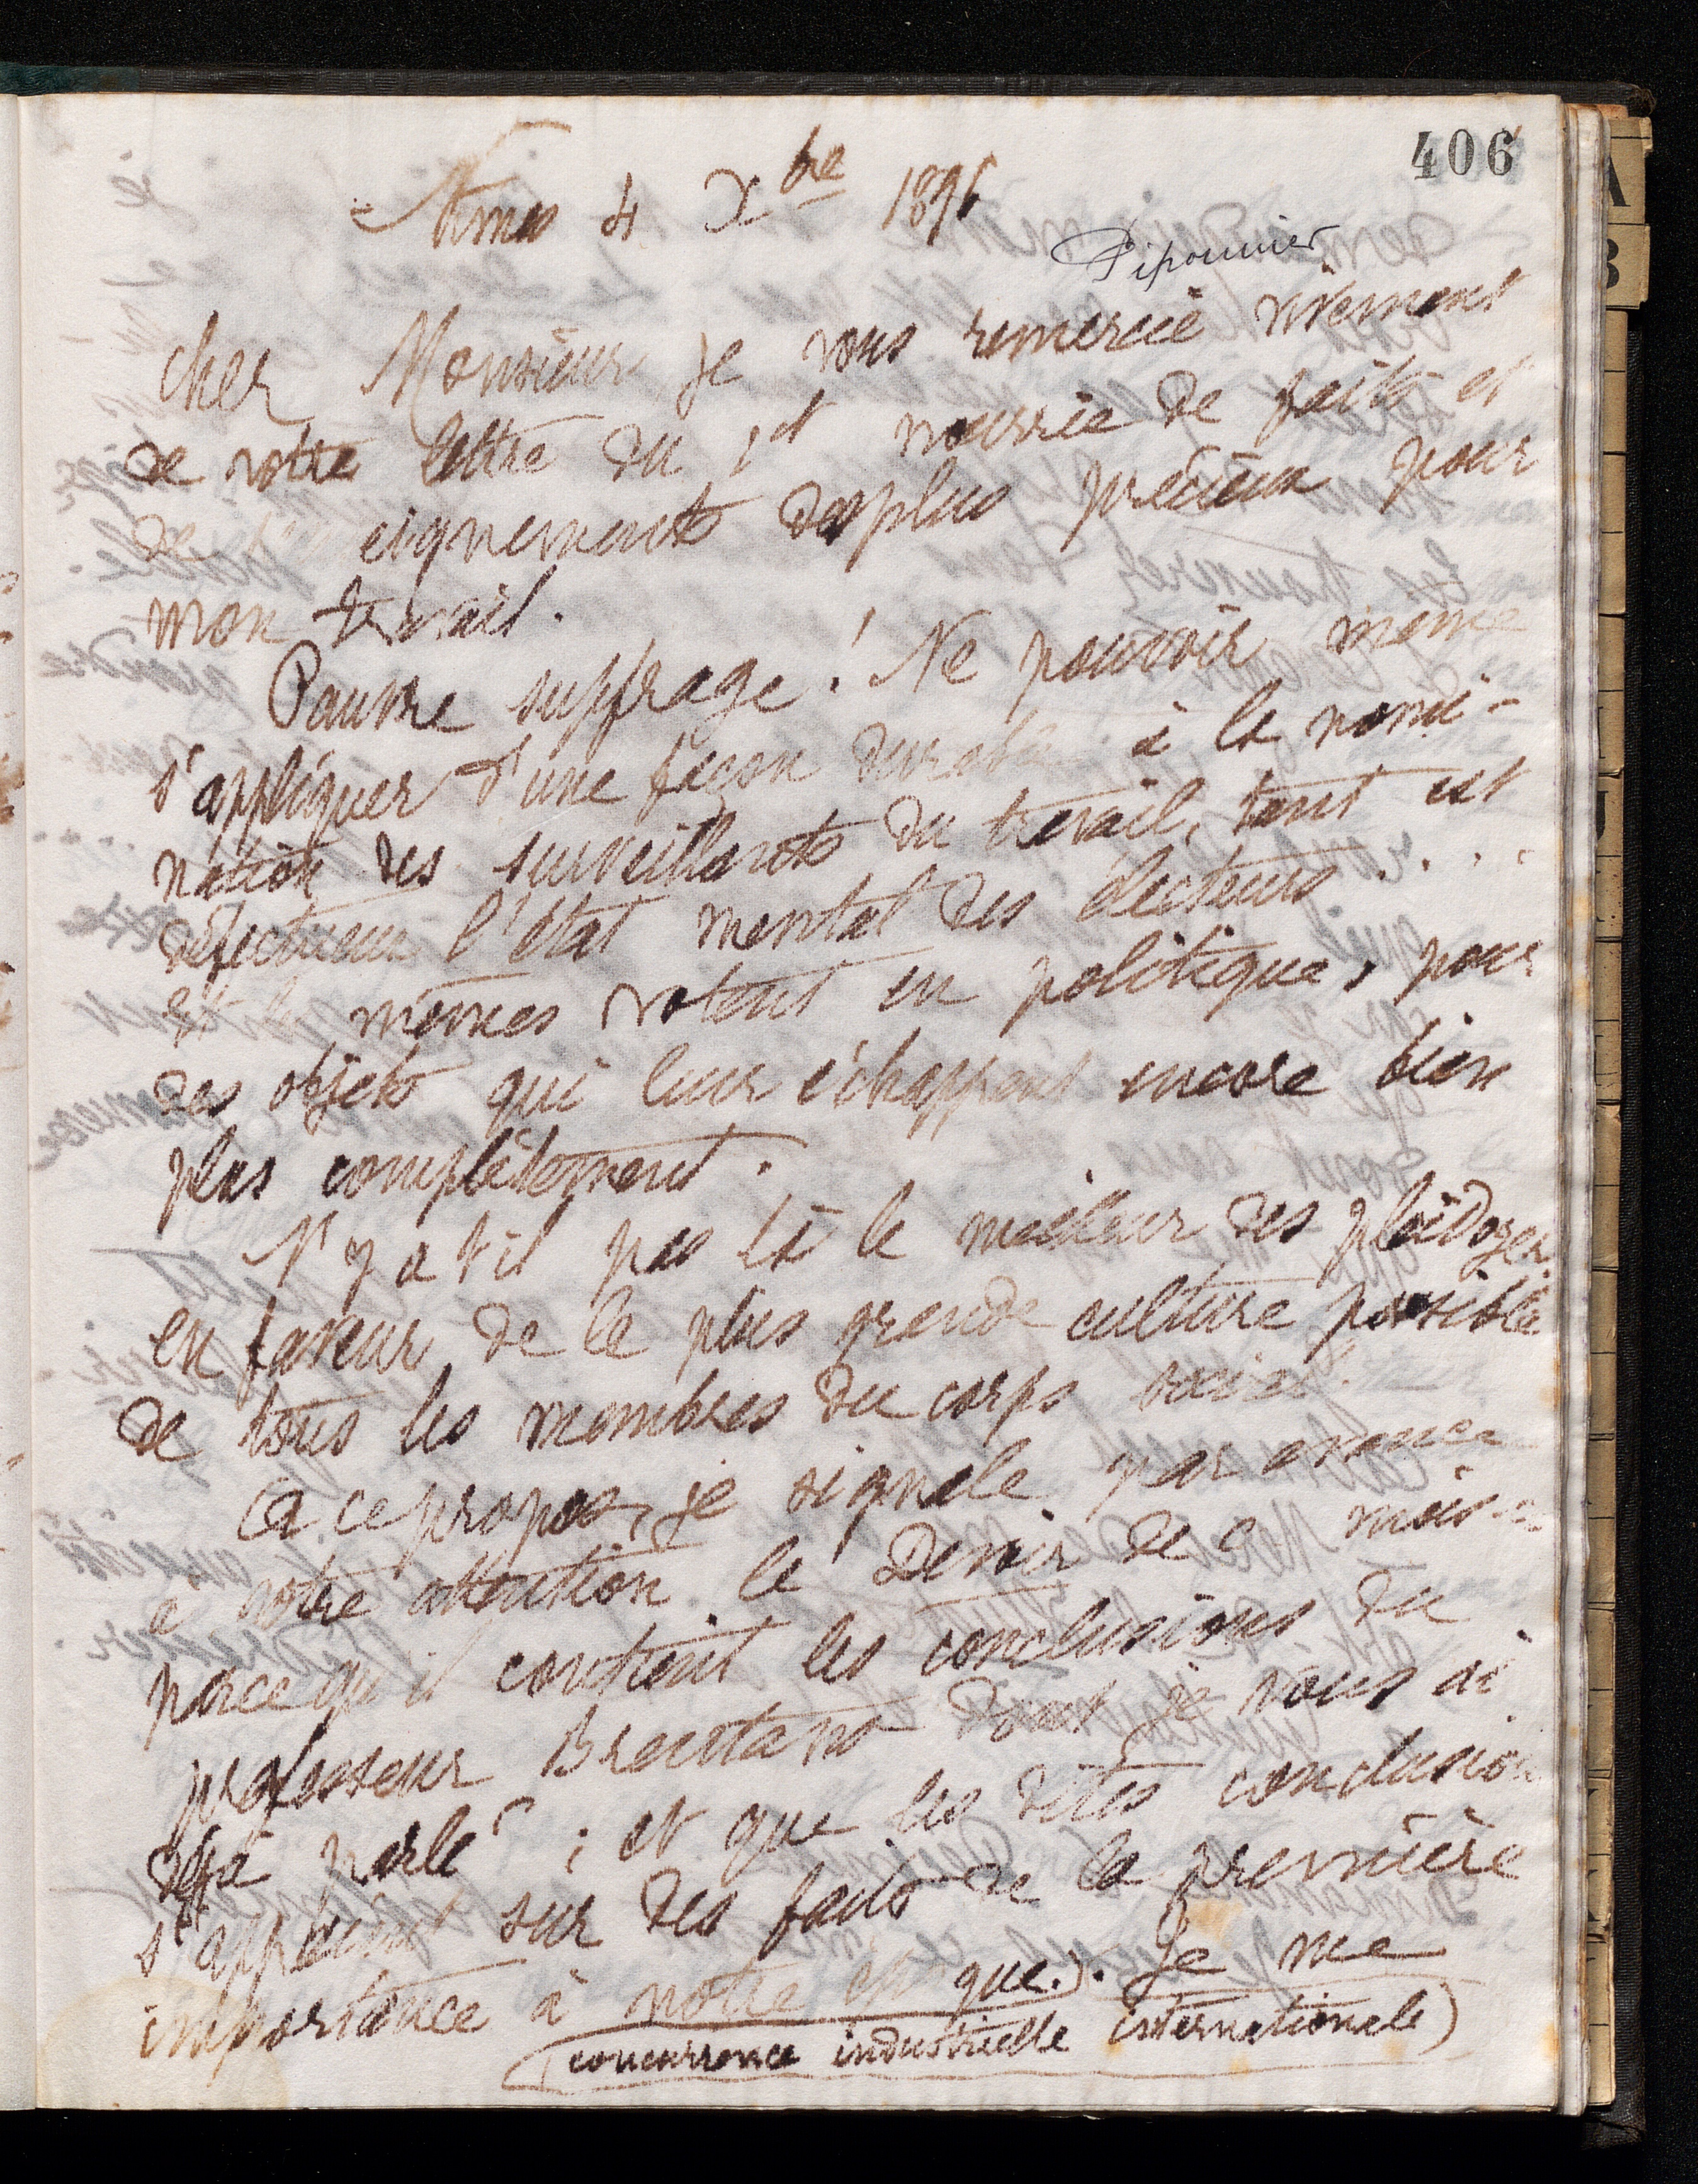 406
Nîmes 4 Xbre 1896
Piponnier
Cher Monsieur je vous remercie vivement
de votre lettre du 1er nourrie de faits et
de eignements des plus précieux pour
mon travail.
Pauvre suffrage! Ne pouvoir même
s'appliquer d'une façon durable à la nomi-
nation des surveillants du travail, tant est
défectueux l'état mental des électeurs . . . .
Et les mêmes votent en politique, pour
des objets qui leur échappent encore bien
plus complètement.
N'y a t'il pas là le meilleur des plaidoyers
en faveur de la plus grande culture possible
de tous les membres du corps social.
A ce propos, je signale par avance
à votre attention le Devoir de ce mois-ci
parce qu'il contient les conclusions du
professeur Brentano dont je vous ai
déjà parlé ; et que les dites conclusions
s'appuient sur des faits de la première
importance à notre époque.). Je me
(concurrence industrielle internationale)